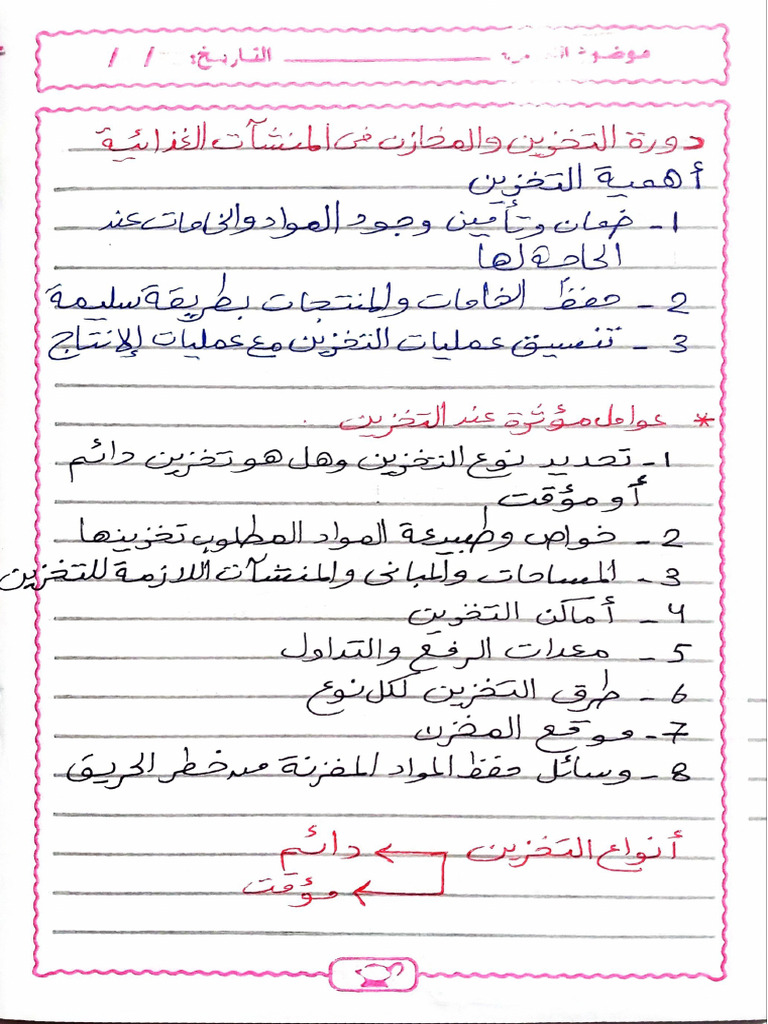 موضوع الـ / / التاريخ:
دورة التخزين والمخازن فى المنشآت الغذائية
أهمية التخزين
1- ضمان وتأمين وجود المواد والخامات عند
الحاجة لها
2- حفظ الخامات والمنتجات بطريقة سليمة
3- تنسيق عمليات التخزين مع عمليات الإنتاج
* عوامل مؤثرة عند التخزين
1- تحديد نوع التخزين وهل هو تخزين دائم
أو مؤقت
2- خواص وطبيعة المواد المطلوب تخزينها
3- المساحات والمبانى والمنشآت اللازمة للتخزين
4- أماكن التخزين
5- معدات الرفع والتداول
6- طرق التخزين لكل نوع
7- موقع المخزن
8- وسائل حفظ المواد المخزنة من خطر الحريق
أنواع التخزين ← دائم
← مؤقت